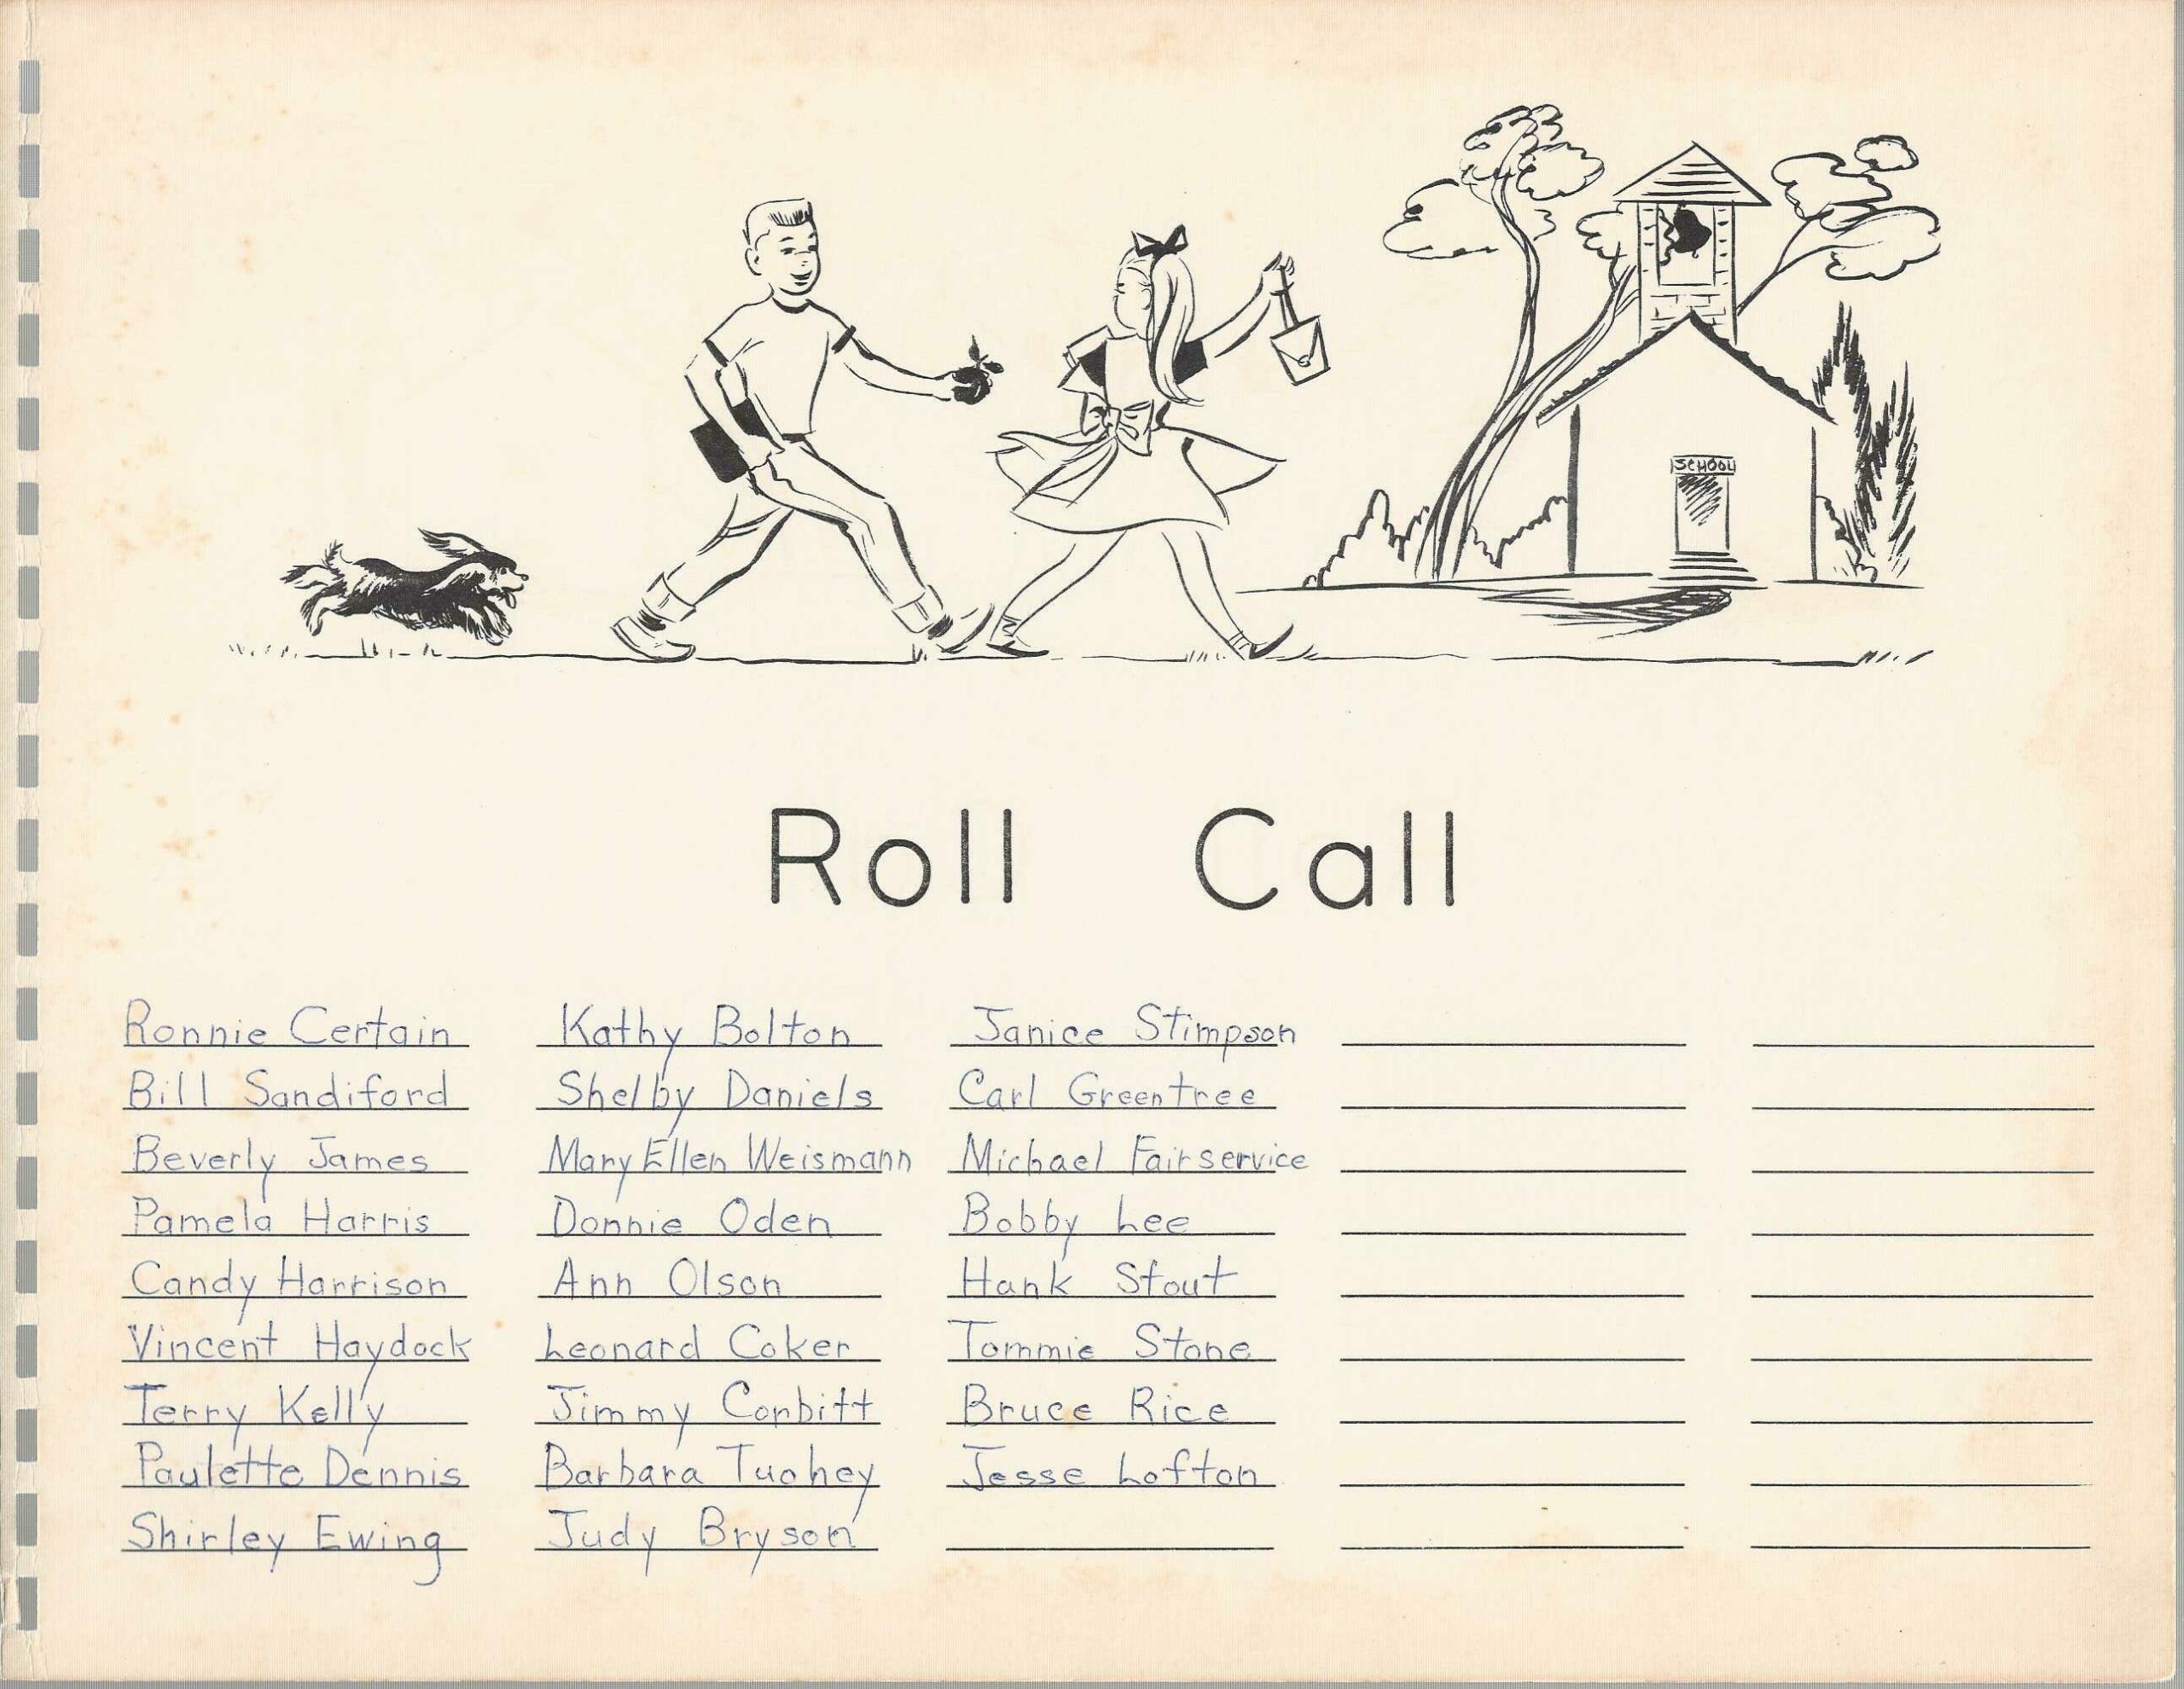 SCHOOL
Roll Call
Ronnie Certain
Bill Sandiford
Beverly James
Pamela Harris
Candy Harrison
Vincent Haydock
Terry Kelly
Paulette Dennis
Shirley Ewing
Kathy Bolton
Shelby Daniels
Mary Ellen Weismann
Donnie Oden
Ann Olson
Leonard Coker
Jimmy Corbitt
Barbara Tuohey
Judy Bryson
Janice Stimpson
Carl Greentree
Michael Fairservice
Bobby Lee
Hank Stout
Tommie Stone
Bruce Rice
Jesse Lofton